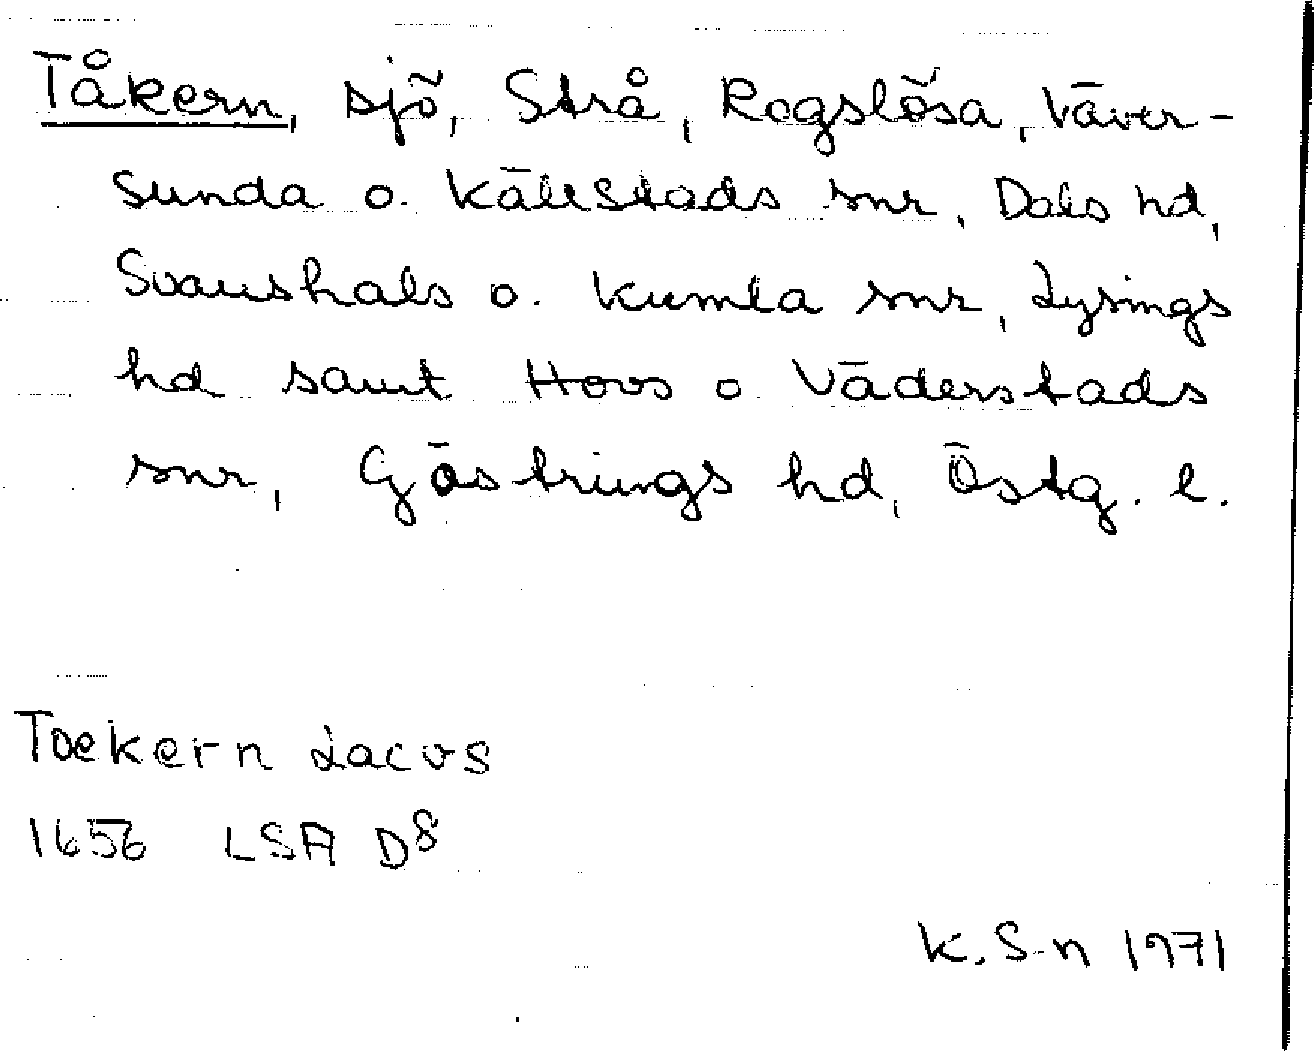 Tåkern, sjö, Strå, Rogslösa, Väver-
sunda o. Källstads snr, Dals hd,
Svanshals o. Kumla snr, Lysings
hd samt Hovs o Väderstads
snr, Göstrings hd, Östg. l.
Toekern Lacus
1656 LSA D8
K. S-n 1971